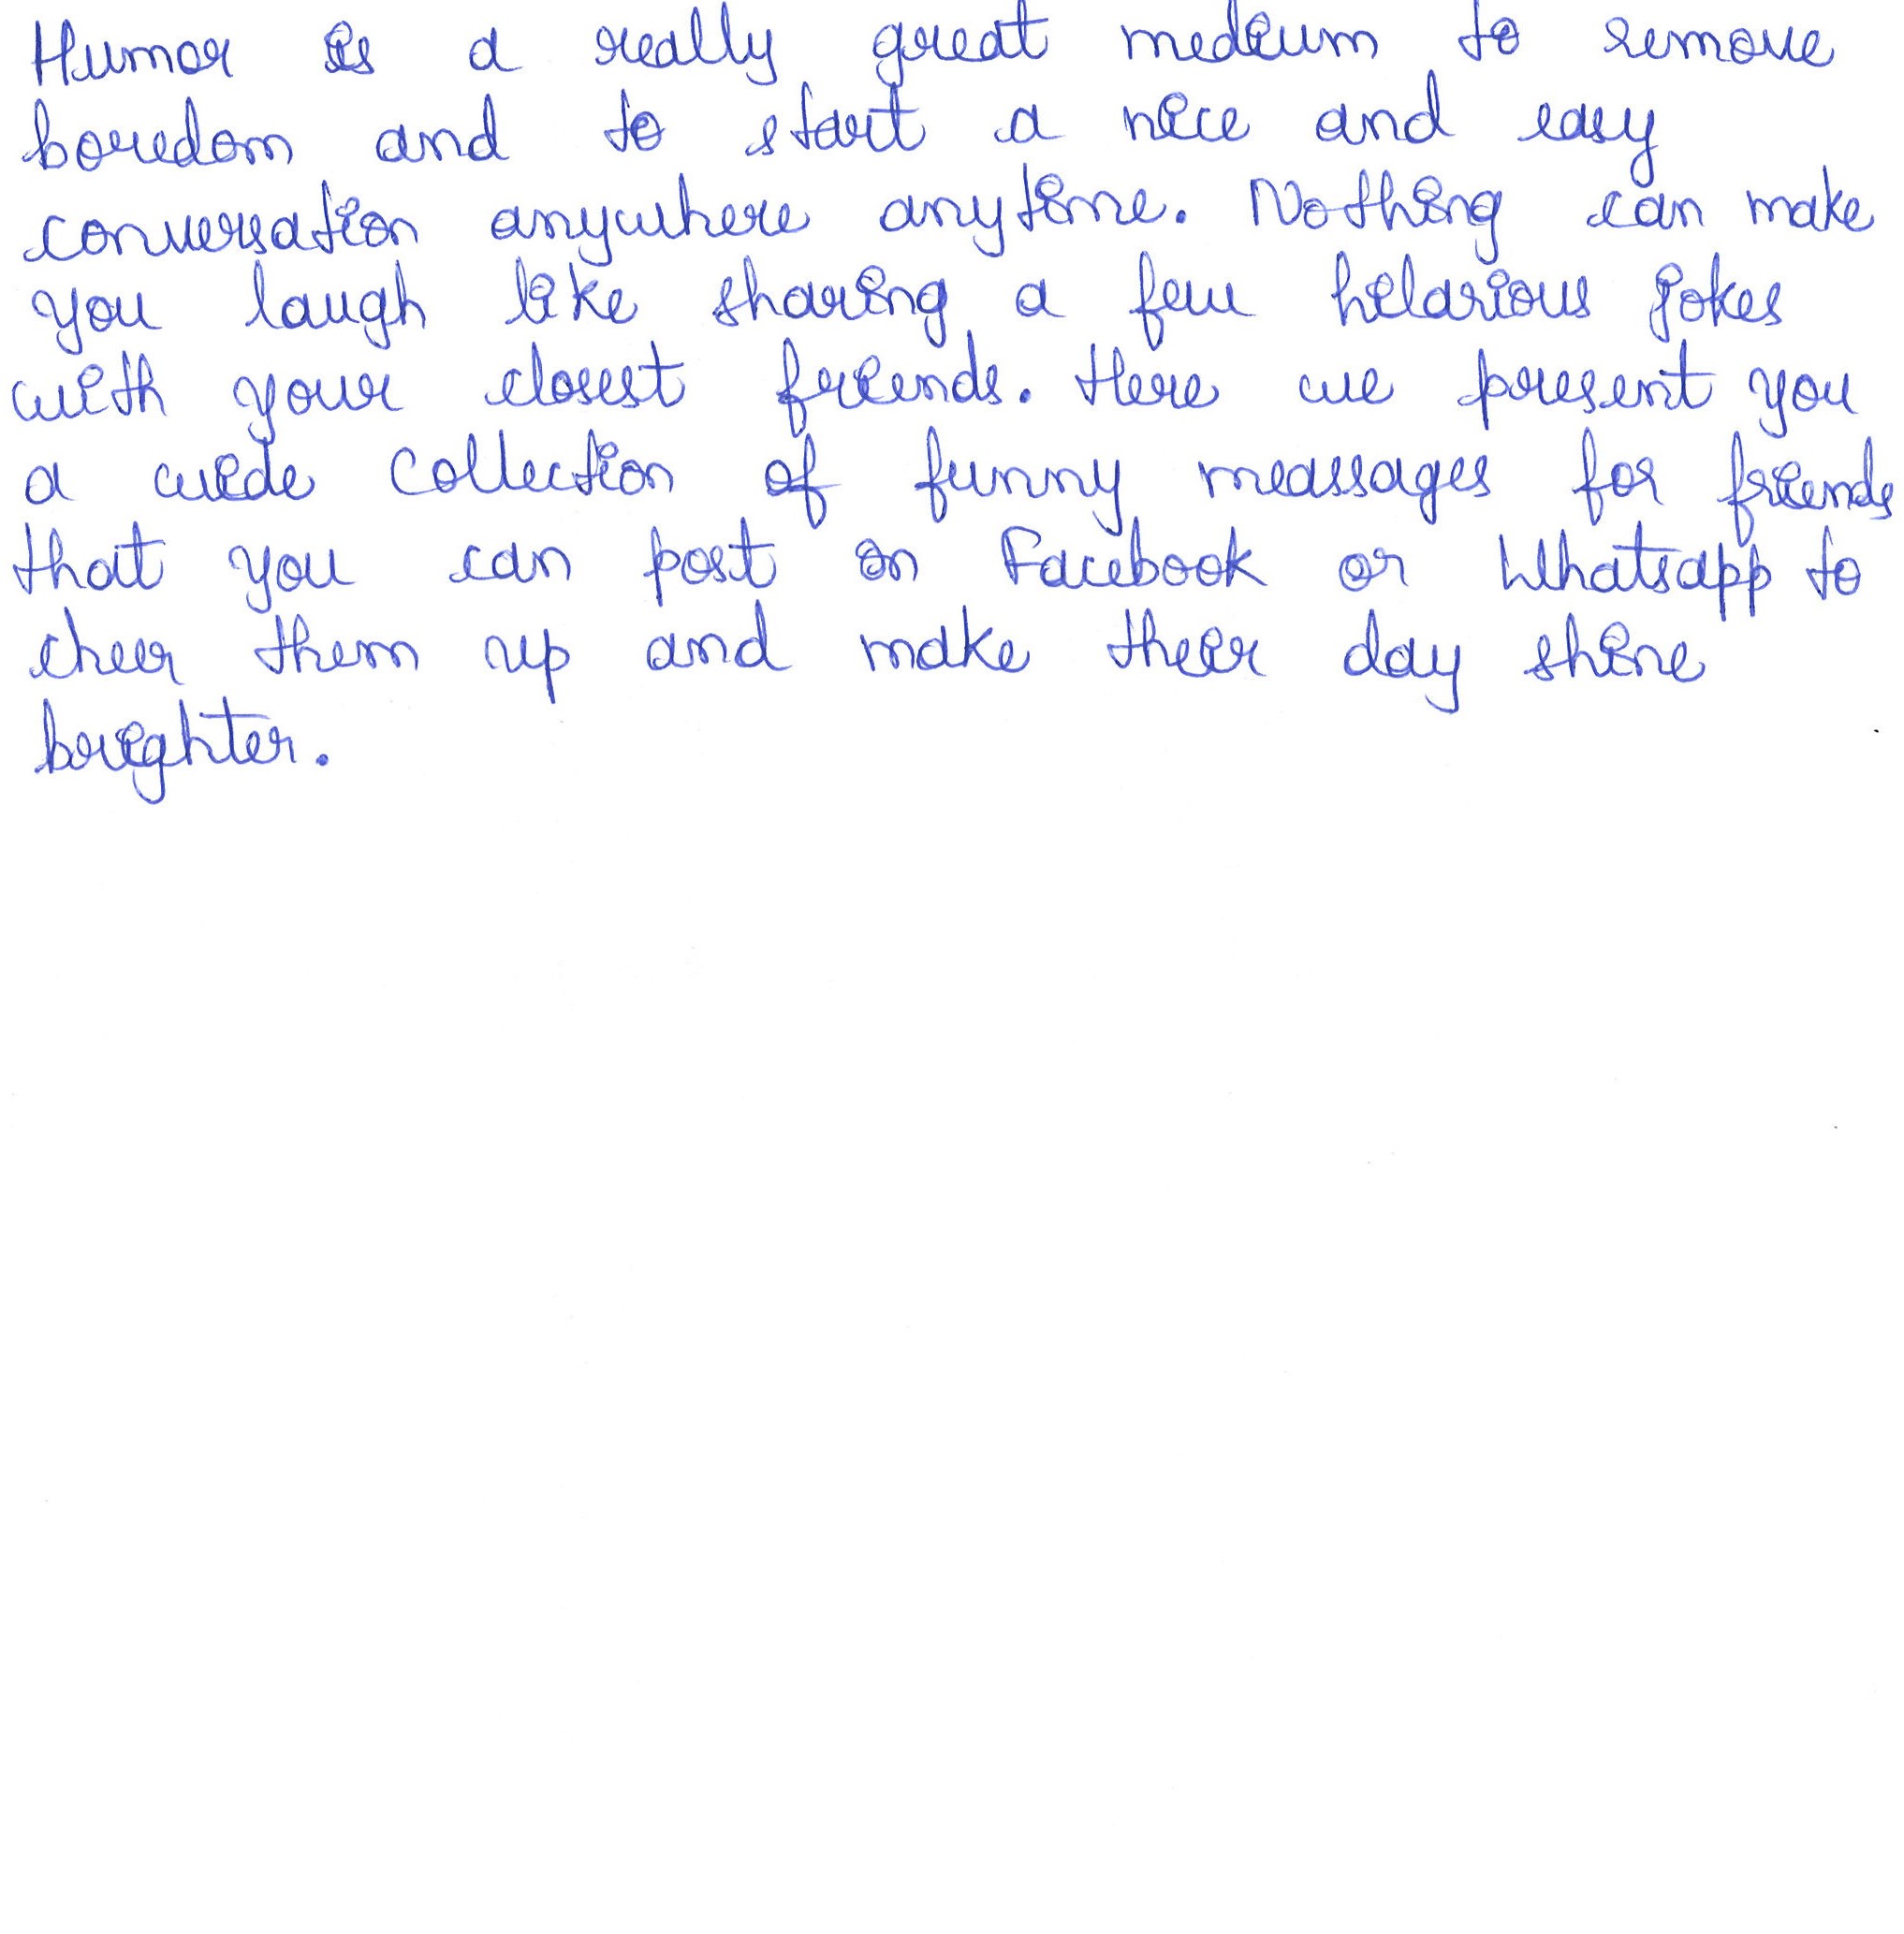 Humor is a really great medium to remove
boredom and to start a nice and easy
conversation anywhere anytime. Nothing can make
you laugh like sharing a few hilarious jokes
with your closest friends. Here we present you
a wide collection of funny meassages for friends
that you can post on Facebook or Whatsapp to
cheer them up and make their day shine
brighter.